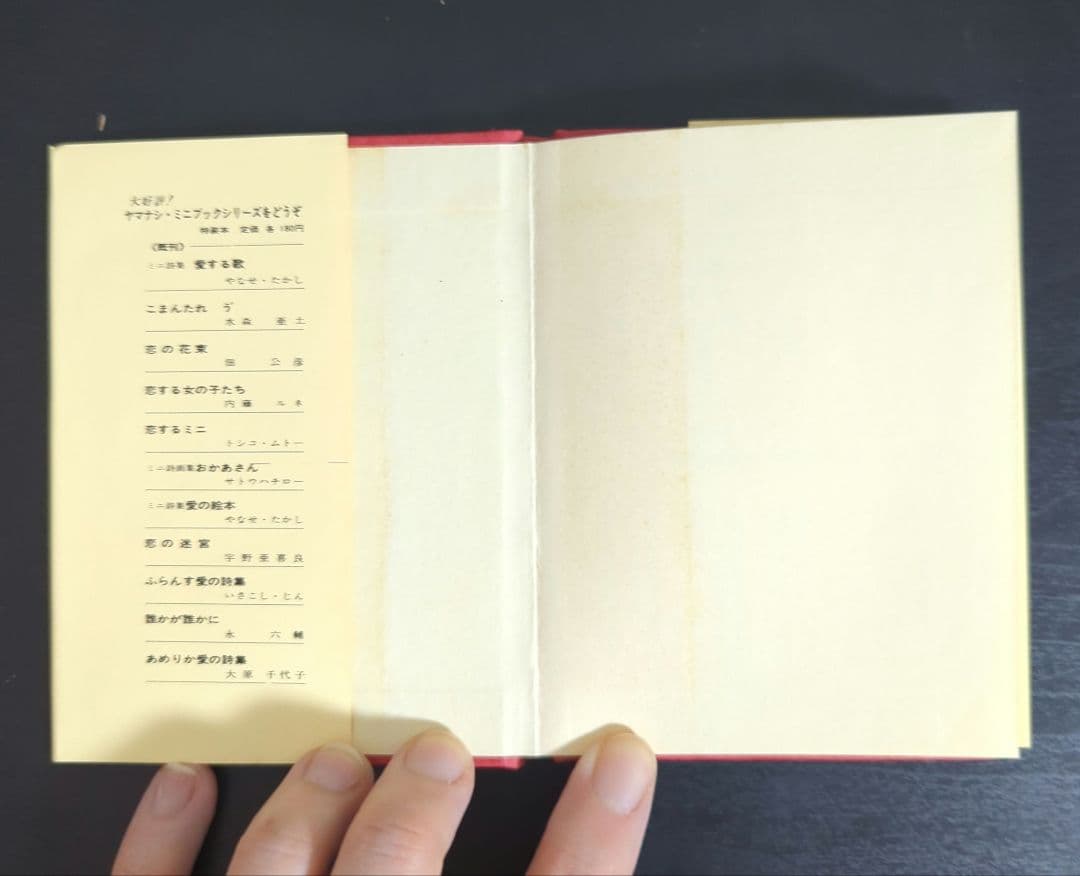 大好評!
ヤマナシ・ミニブックシリーズをどうぞ
特装本 定価 各 180円
《既刊》
ミニ詩集 愛する歌
やなせ・たかし
こまんたれ ゔ
水森 亜土
恋の花束
佃 公彦
恋する女の子たち
内藤 ルネ
恋するミニ
トシコ・ムトー
ミニ詩画集おかあさん
サトウハチロー
ミニ詩集愛の絵本
やなせ・たかし
恋の迷宮
宇野亜喜良
ふらんす愛の詩集
いさこし・じん
誰かが誰かに
永 六輔
あめりか愛の詩集
大原 千代子